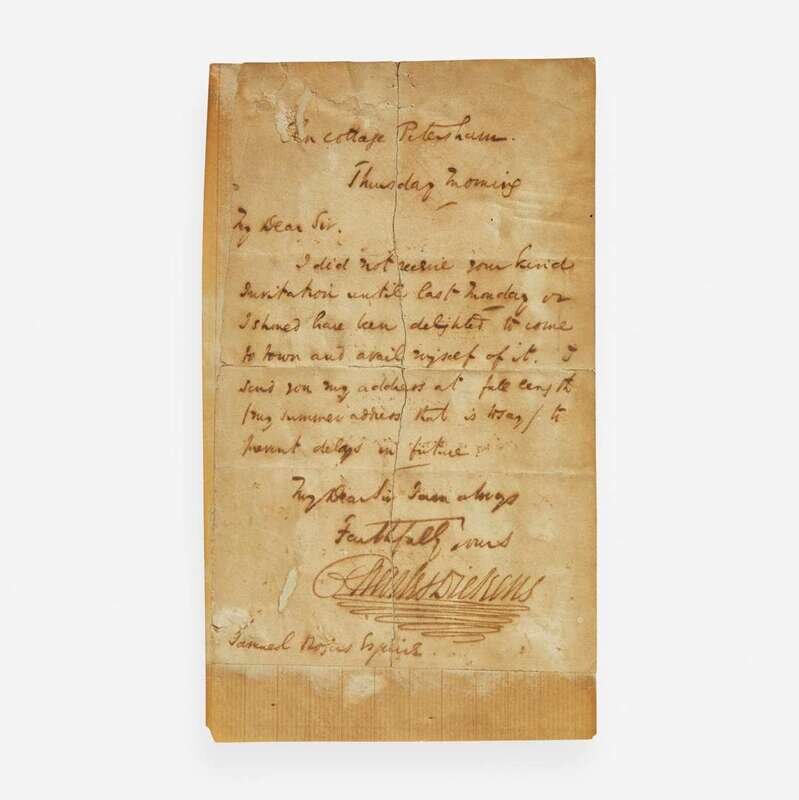 cottage Petersham.
Thursday Morning
My Dear Sir.
I did not receive your kind
Invitation until last Monday or
I should have been delighted to come
to town and avail myself of it. I
send you my address at full length
(my summer address that is to say) to
prevent delays in future.
My Dear Sir I am always
Faithfully yours
Charles Dickens
Samuel Rogers Esquire.